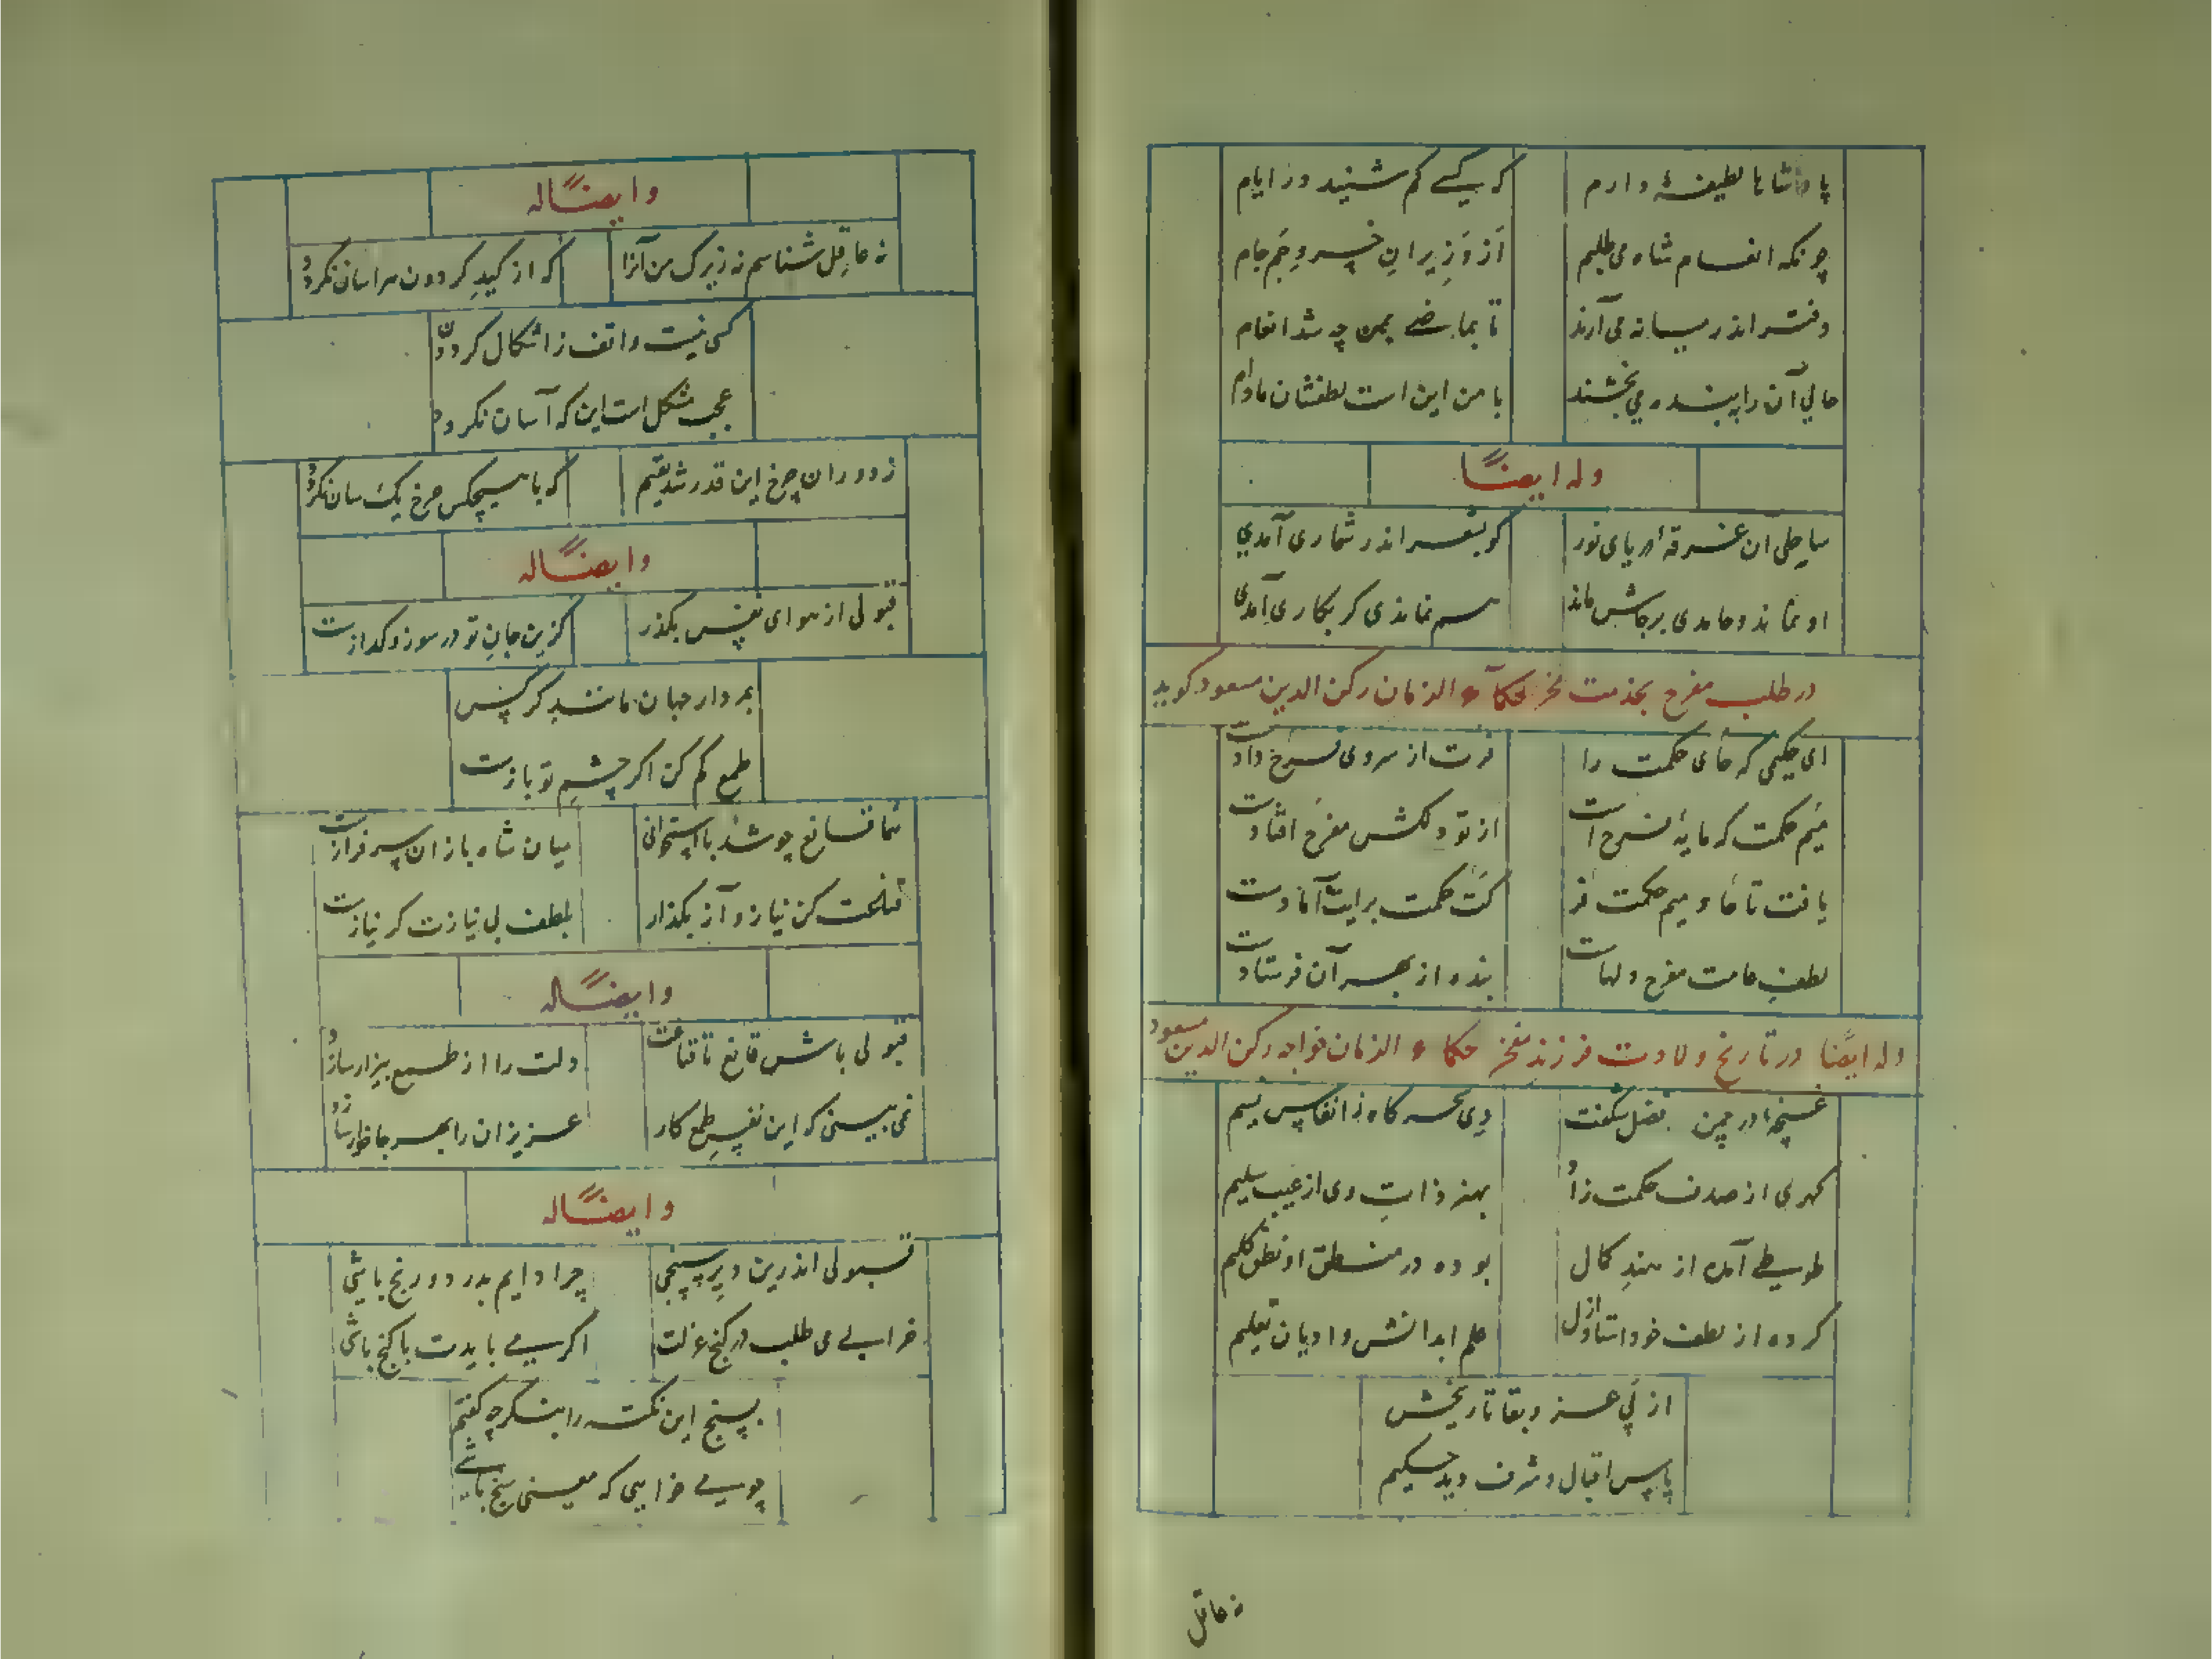 پادشاها لطیفهٔ دارم
که کسی کم شنید در ایام
چونکه انعام شاه می طلبم
از وزیران خسرو جم جام
دفتر اندر میانه می آرند
تا بماضی بمن چه شد انعام
حالی آن را ببنده می بخشند
با من این است لطفشان مادام
وله ایضاً
ساحلی آن غرقهٔ دریای نور
کو بشعر اندر شماری آمدی
او نماند و حامدی برجاش ماند
هم نماندی کر بکاری آمدی
در طلب مفرح بخدمت فخر حکماء الزمان رکن الدین مسعود کوید
ای حکیمی که حای حکمت را
میم حکمت که مایهٔ فرح است
از تو دلکش مفرح افتادست
یافت تا حا و میم حکمت فر
لطف عامت مفرح دلهاست
بنده از بهر آن فرستادست
وله ایضاً در تاریخ ولادت فرزند مفخر حکماء الزمان خواجه رکن الدین مسعود
غنچهٔ در چمن فضل شکفت
دی سحر کاه ز انفاس نسیم
کهری از صدف حکمت زاد
بهنر ذات وی از عیب سلیم
طوطی آمد از هند کمال
بوده در منطق او نطق کلیم
کرده از لطف خود استاد ازل
علم ابدانش و ادیان تعلیم
از پی عز و بقا تاریخش
پاس اقبال و شرف دید حکیم
نه عاقل
وایضاً له
نه عاقل شناسم نه زیرک من آنرا
که از کید کردون هراسان نکردد
کسی نیست واقف ز اشکال کردون
عجب مشکل است این که آسان نکردد
ز دوران چرخ این قدر شد یقینم
که با هیچکس چرخ یک سان نکردد
وایضاً له
قبولی از هوای نفس بکذر
کزین جان تو در سوز و کدازست
بمردار جهان مانند کرکس
طمع کم کن اکر چشم تو بازست
هما قانع چو شد با استخوانی
میان شاه بازان سرفرازست
قناعت کن نیاز و آز بکذار
بلطف بی نیازت کر نیازست
وایضاً له
قبولی باش قانع تا قناعت
دلت را از طمع بیزار سازد
نمی بینی که این نفس طمع کار
عزیزان را بهر جا خوار سازد
وایضاً له
قبولی اندرین دیر سپنجی
چرا دایم بدرد و رنج باشی
خرابی می طلب در کنج عزلت
اکر می بایدت با کنج باشی
بسنج این نکته را بنکر چه کفتم
چو می خواهی که معنی سنج باشی